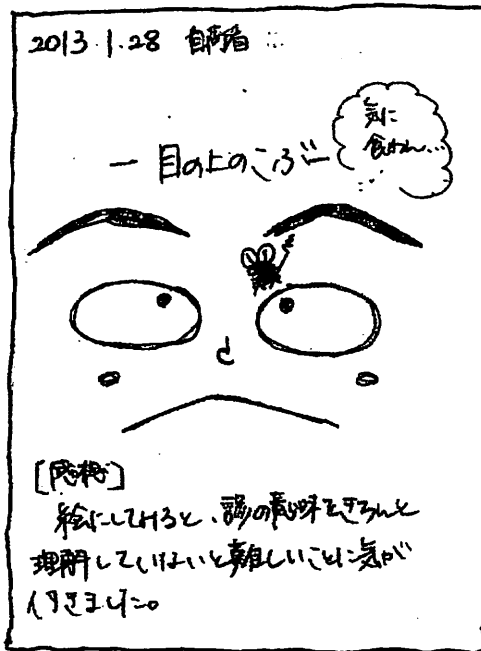 2013.1.28
気に
食わん…
ー目の上のこぶー
[感想]
絵にしてみると、諺の意味をきちんと
理解していないと難しいことに気が
付きました。